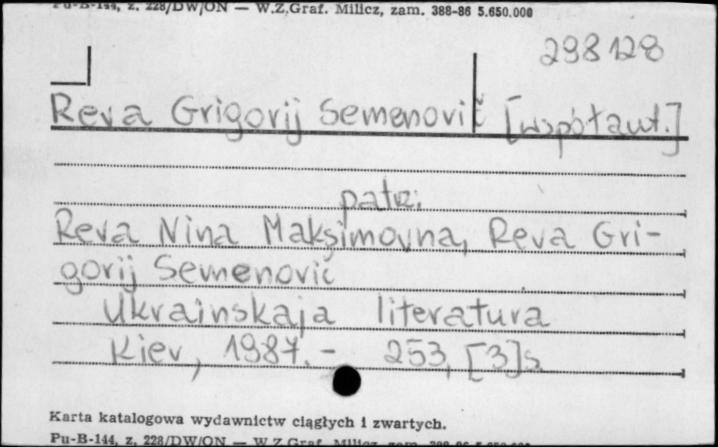 Pu-B-144, z. 228/DW/ON — W.Z.Graf. Milicz, zam. 388-86 5.650.000
298128
Reva Grigorij Semenovič [współaut.]
patrz:
Reva Nina Maksimovna, Reva Gri-
gorij Semenovič
Ukrainskaja literatura
Kiev, 1987. - 253, [3]s.
Karta katalogowa wydawnictw ciągłych i zwartych.
Pu-B-144, z. 228/DW/ON — W.Z.Graf. Milicz, zam.